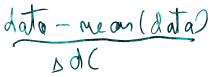 data - mean(data)
ΔdC